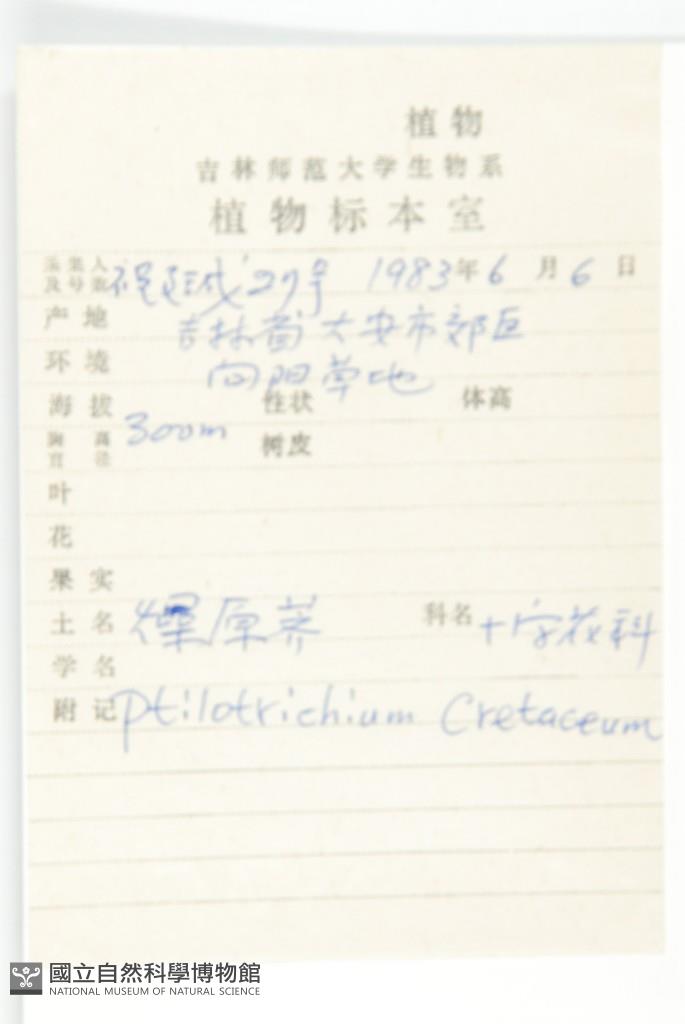 植物
吉林师范大学生物系
植物标本室
采集人及号数 27号 1983年6月6日
产地 吉林省大安市郊区
环境 向阳草地
海拔 300m 性状 体高
胸高直径 树皮
叶
花
果实
土名 燥原荠 科名 十字花科
学名
附记 Ptilotrichium Cretaceum
國立自然科學博物館
NATIONAL MUSEUM OF NATURAL SCIENCE